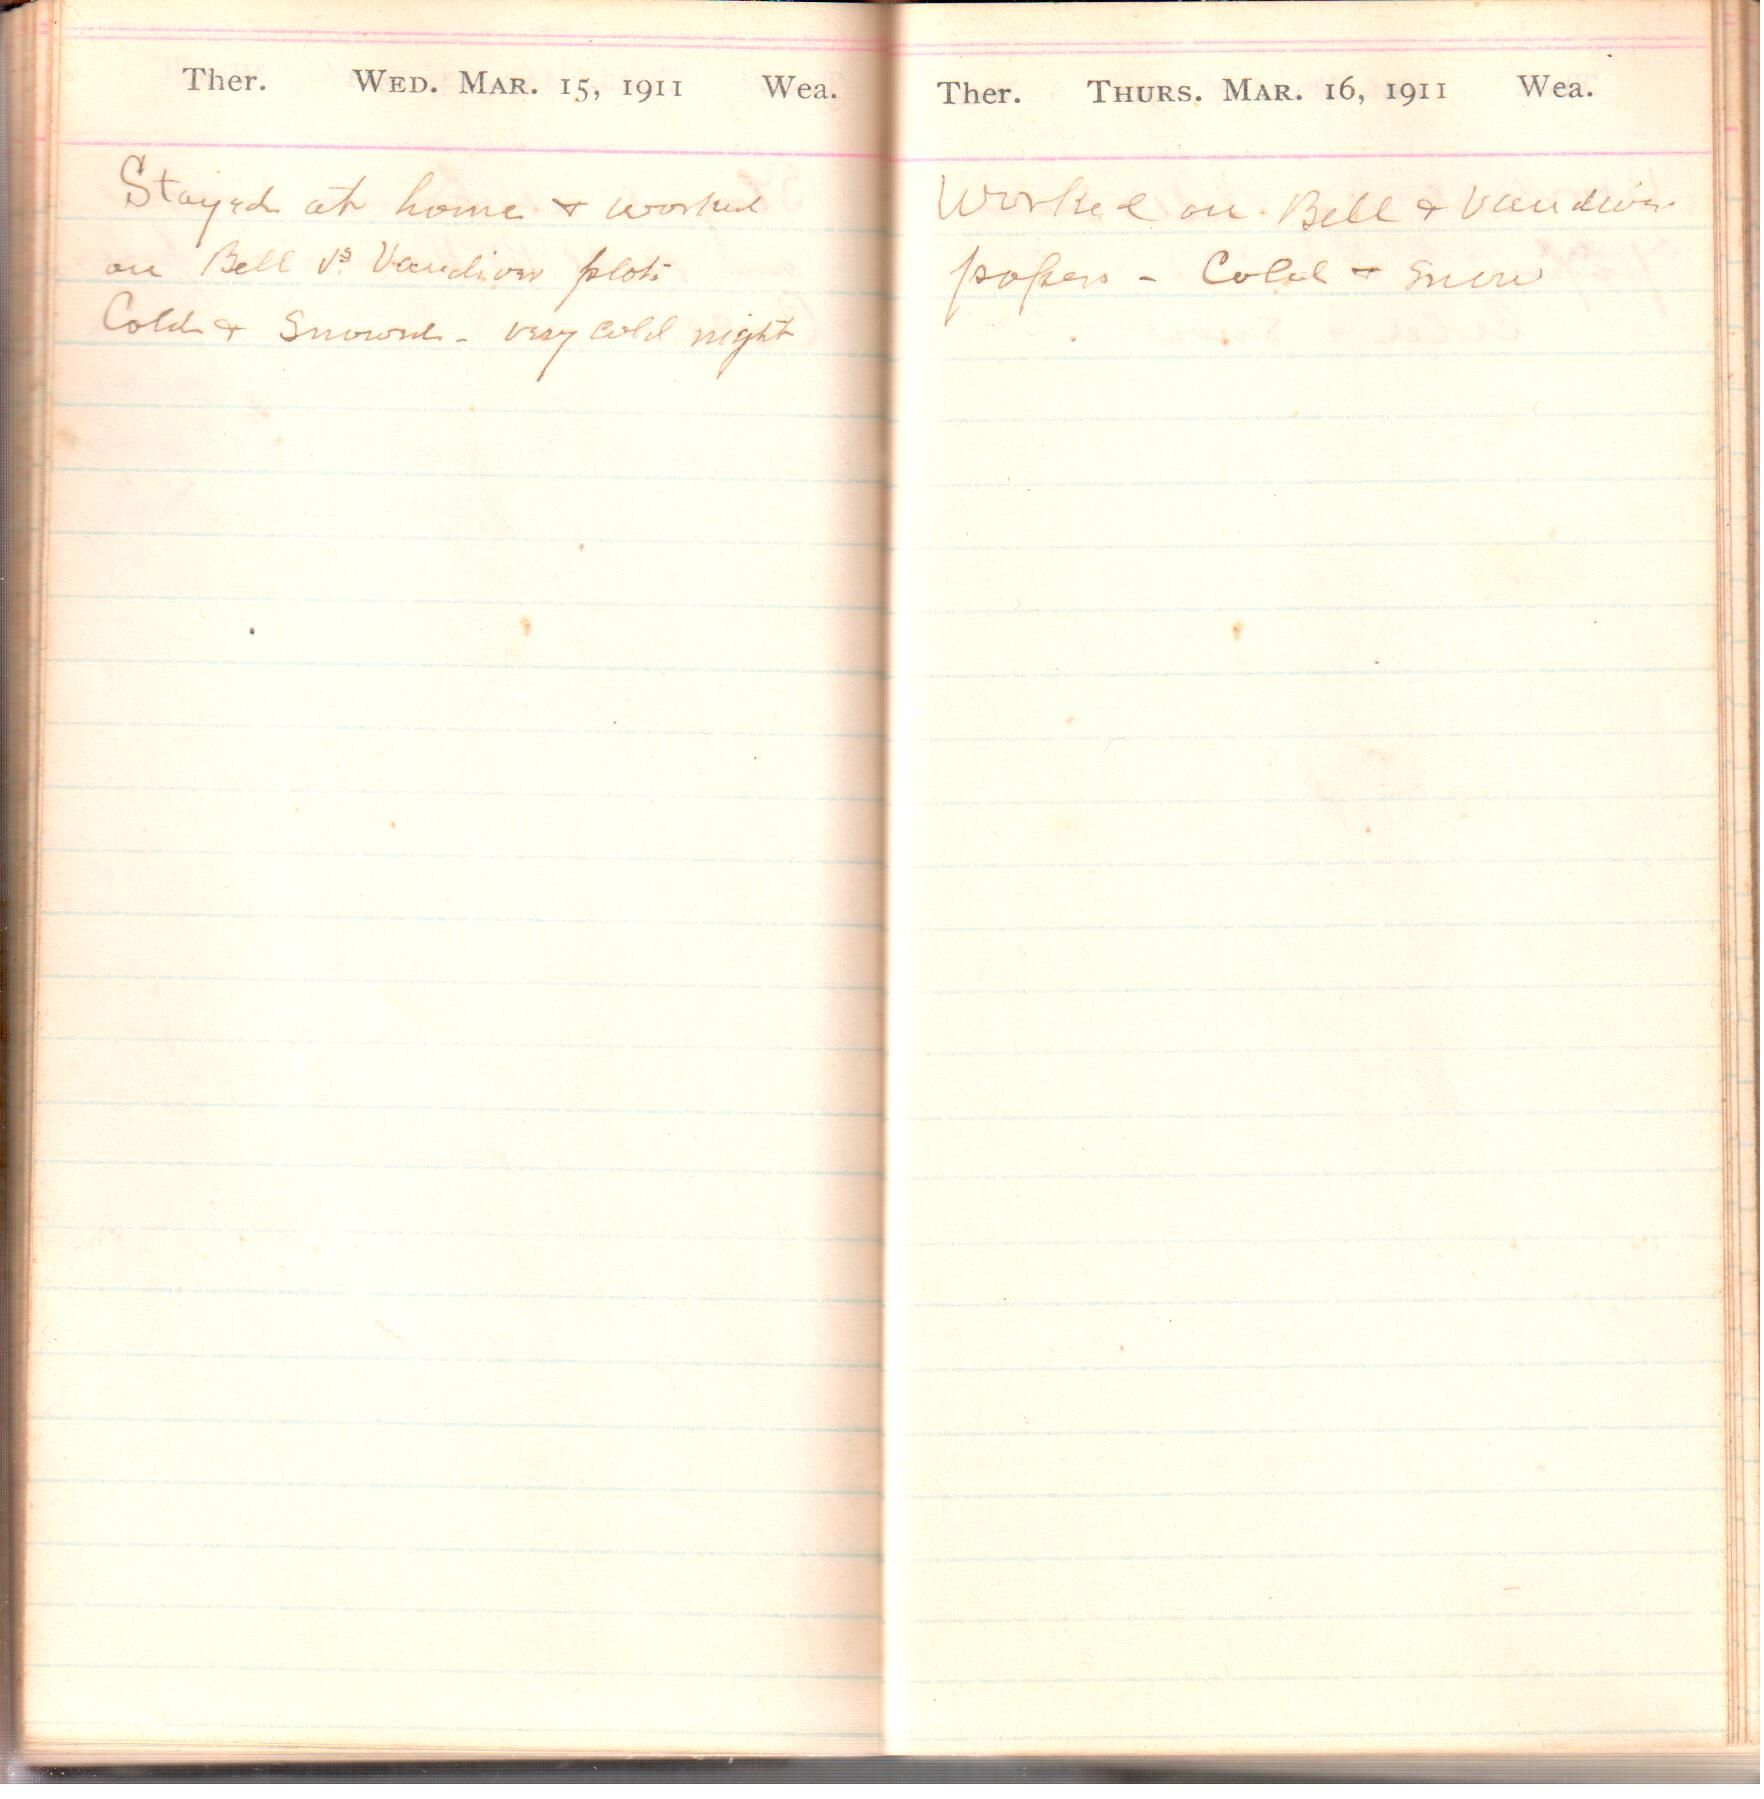 Ther. WED. MAR. 15, 1911 Wea.
Stayed at home & worked
on Bell vs. Vandiver plots
Cold & Snowed - very cold night
Ther. THURS. MAR. 16, 1911 Wea.
Worked on Bell & Vandiver
papers - Cold & Snow